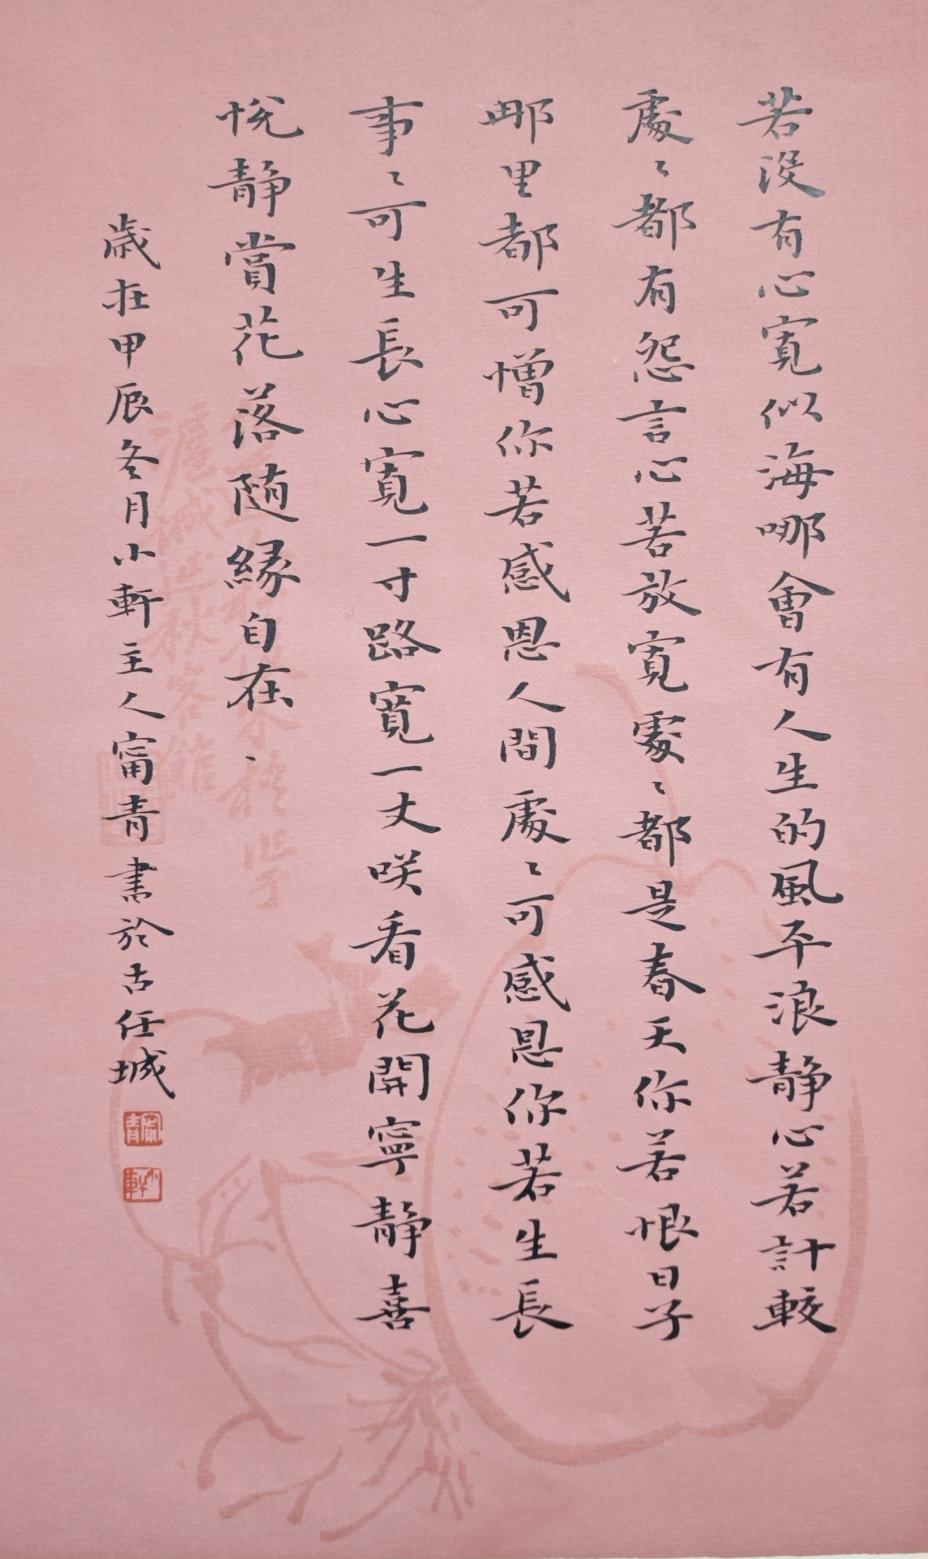 若没有心寬似海哪會有人生的風平浪静心若計較
處〻都有怨言心若放寬處〻都是春天你若恨日子
哪里都可憎你若感恩人間處〻可感恩你若生長
事〻可生長心寬一寸路寬一丈咲看花開寧静喜
悦静賞花落随緣自在
歲在甲辰冬月小軒主人甯青書於古任城
甯青
小軒